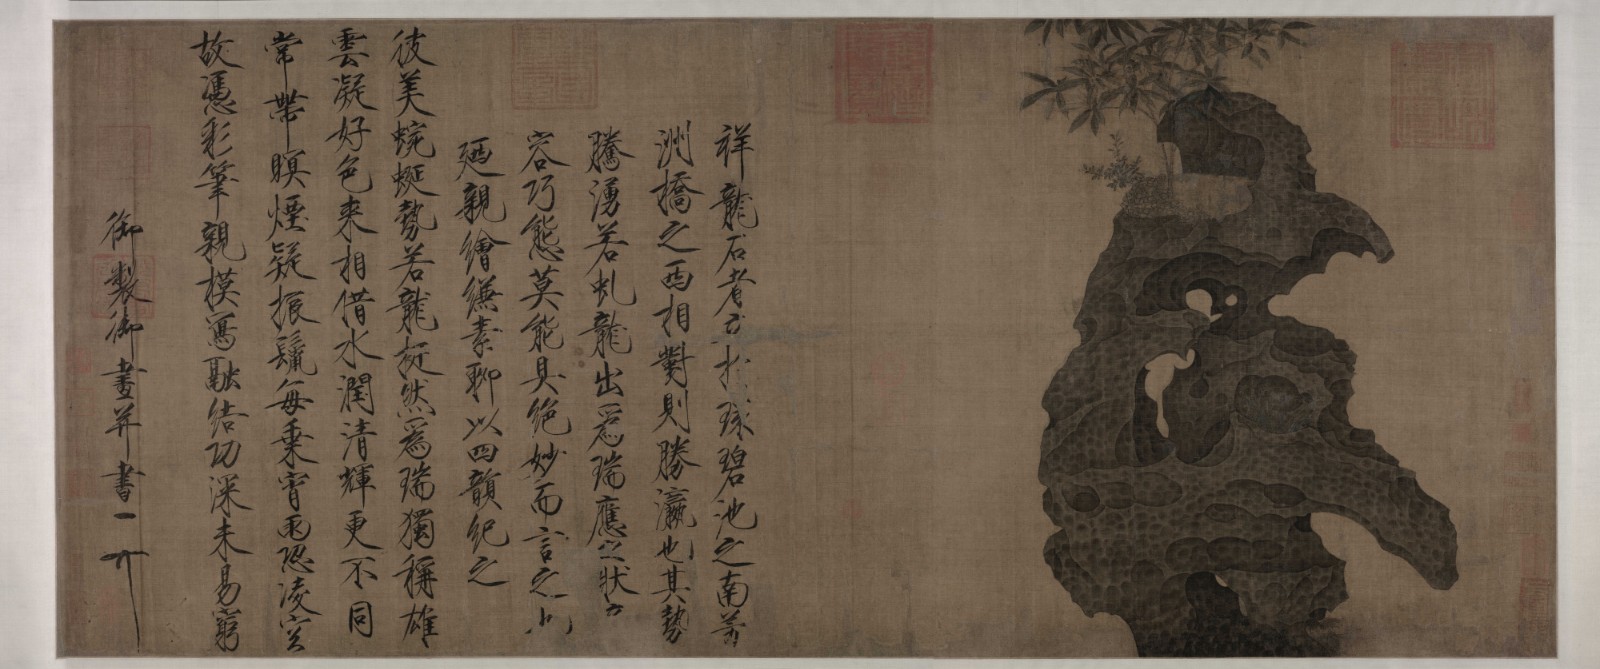 祥龍石者立於環碧池之南芳
洲橋之西相對則勝瀛也其勢
騰湧若虬龍出爲瑞應之狀奇
容巧態莫能具絕妙而言之也
廼親繪縑素聊以四韻紀之
彼美蜿蜒勢若龍挺然爲瑞獨稱雄
雲凝好色来相借水潤清輝更不同
常帶暝煙疑振鬣每乘宵雨恐凌空
故憑彩筆親模寫融結功深未易窮
御製御畫并書